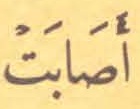 أَصَابَتْ